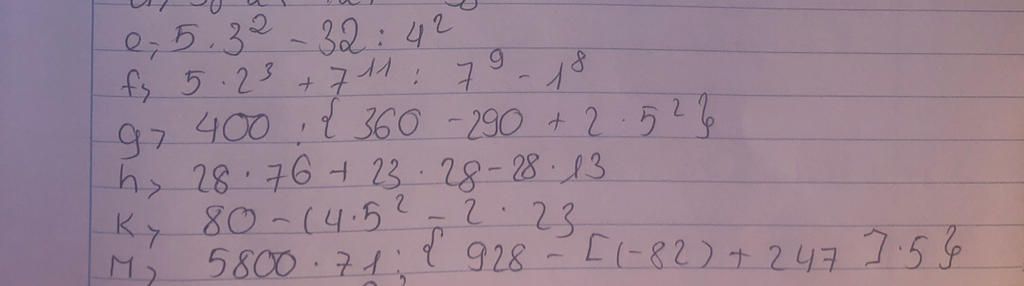 e, 5 . 3² - 32 : 4²
f, 5 . 2³ + 7¹¹ : 7⁹ - 1⁸
g, 400 : { 360 - 290 + 2 . 5² }
h, 28 . 76 + 23 . 28 - 28 . 13
k, 80 - (4 . 5² - 2 . 23
M, 5800 . 71 : { 928 - [(-82) + 247 ] . 5 }